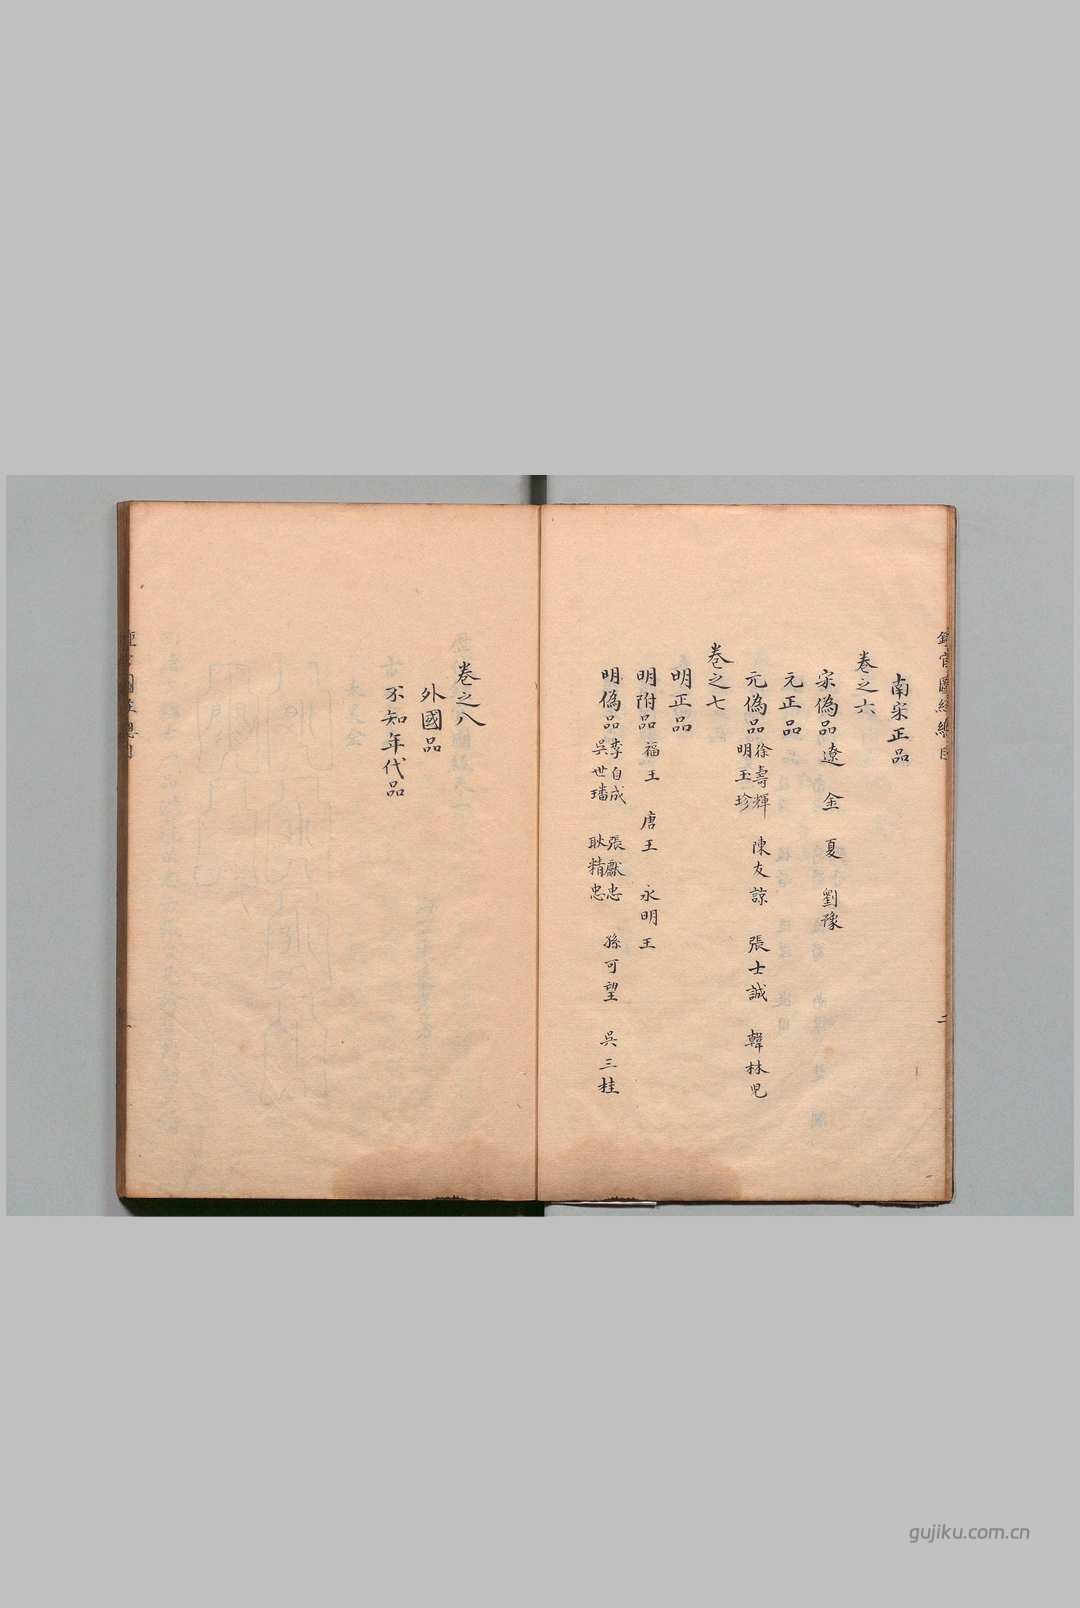 南宋正品
卷之六
宋偽品 遼 金 夏 劉豫
元正品
元偽品 徐壽輝 明玉珍 陳友諒 張士誠 韓林兒
卷之七
明正品
明附品 福王 唐王 永明王
明偽品 李自成 吳世璠 張獻忠 耿精忠 孫可望 吳三桂
卷之八
外國品
不知年代品
二
gujiku.com.cn